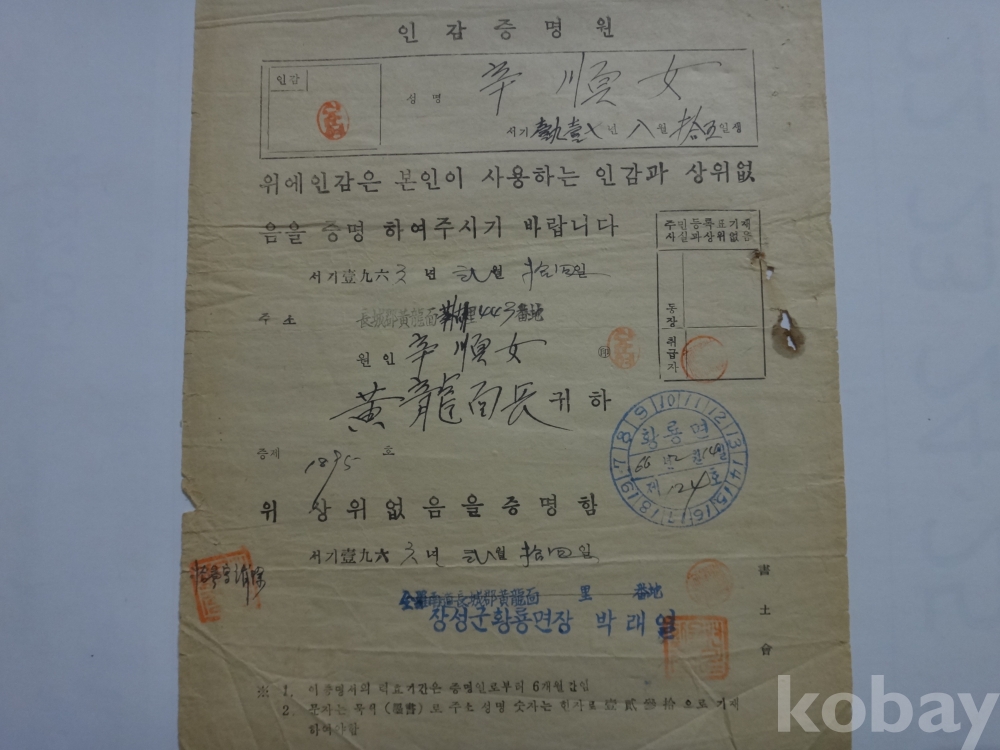 인감증명원
인감
성명 辛順女
서기 년 八월 拾五일생
위에인감은 본인이 사용하는 인감과 상위없
음을 증명 하여주시기 바랍니다
주민등록표기재
사실과상위없음
동장
취급자
서기壹九六六年 貳월 拾四일
주소 長城郡黃龍面 里443番地
원인 辛順女 ㊞
黃龍面長 귀하
증제 1895 호
황룡면
66 년 2 월 14 일
제 124 호
7 8 9 10 11 12 13 14 15 16 17 18 19
위 상위없음을증명함
서기壹九六六년 貳월 拾四일
全羅南道長城郡黃龍面 里 番地
장성군황룡면장 박래일
書士會
※ 1. 이증명서의 력요기간은 증명일로부터 6개월간임
2. 문자는묵색(墨書)로 주소 성명 숫자는 한자로 壹貳參拾으로 기재
하여야함
kobay